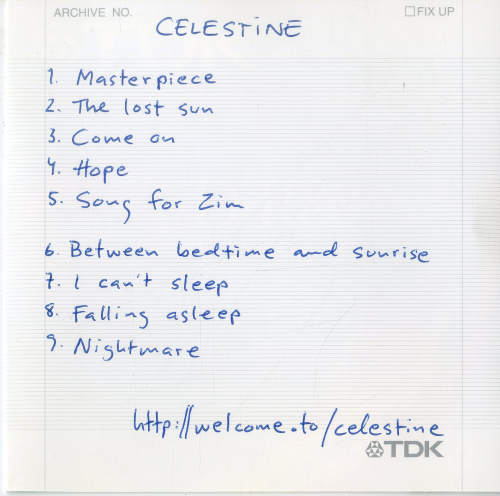 ARCHIVE NO. FIX UP
CELESTINE
1. Masterpiece
2. The lost sun
3. Come on
4. Hope
5. Song for Zim
6. Between bedtime and sunrise
7. I can't sleep
8. Falling asleep
9. Nightmare
http://welcome.to/celestine
TDK